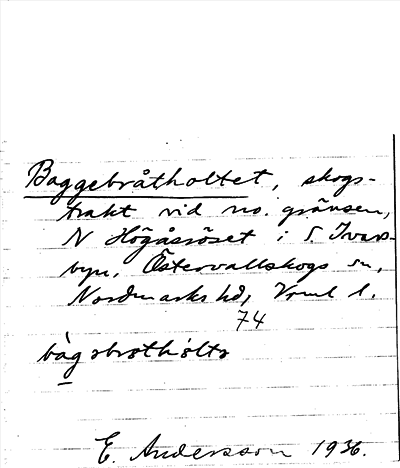 Baggebråtholtet, skogs-
trakt vid no. gränsen,
N Högåsröset i S. Ivars-
byn, Östervallskogs sn,
Nordmarks hd, Vrml l.
74
bàgəbrøthóltə
E. Andersson 1936.